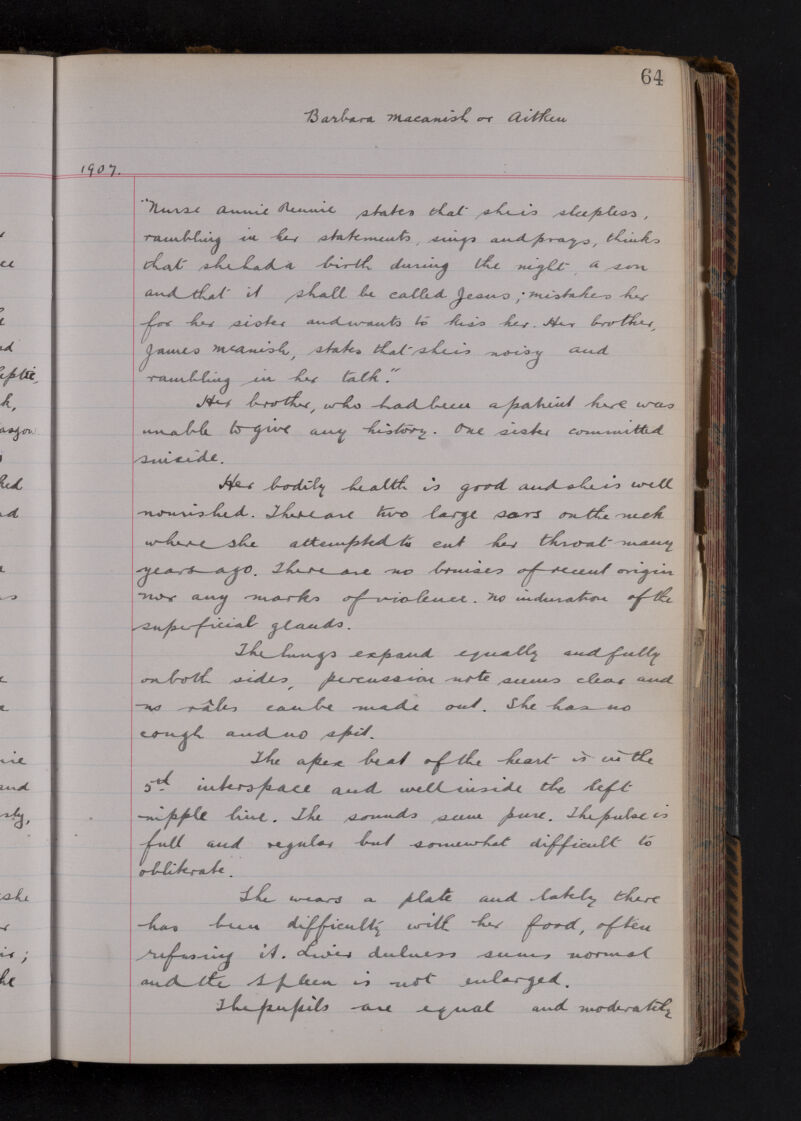 64
Barbara Macanish or Aitken
1907.
"Nurse Annie Rennie states that she is sleepless,
rambling in her statements, sings and prays, thinks
that she had a birth during the night, a son
and that it shall be called Jesus; mistakes her
for her sister and wants to kiss her. Her brother,
James McAnish, states that she is noisy and
rambling in her talk."
Her brother, who had been a patient here was
unable to give any history. One sister committed
suicide.
Her bodily health is good and she is well
nourished. There are two large scars on the neck
where she attempted to cut her throat many
years ago. There are no bruises of recent origin
nor any marks of violence. No induration of the
superficial glands.
The lungs expand equally and fully
on both sides, percussion note seems clear and
no râles can be made out. She has no
cough and no spit.
The apex beat of the heart is in the
5th interspace and well inside the left
nipple line. The sounds seem pure. The pulse is
full and regular but somewhat difficult to
obliterate.
She wears a plate and lately there
has been difficulty with her food, often
refusing it. Liver dulness seems normal
and the spleen is not enlarged.
The pupils are equal and moderately